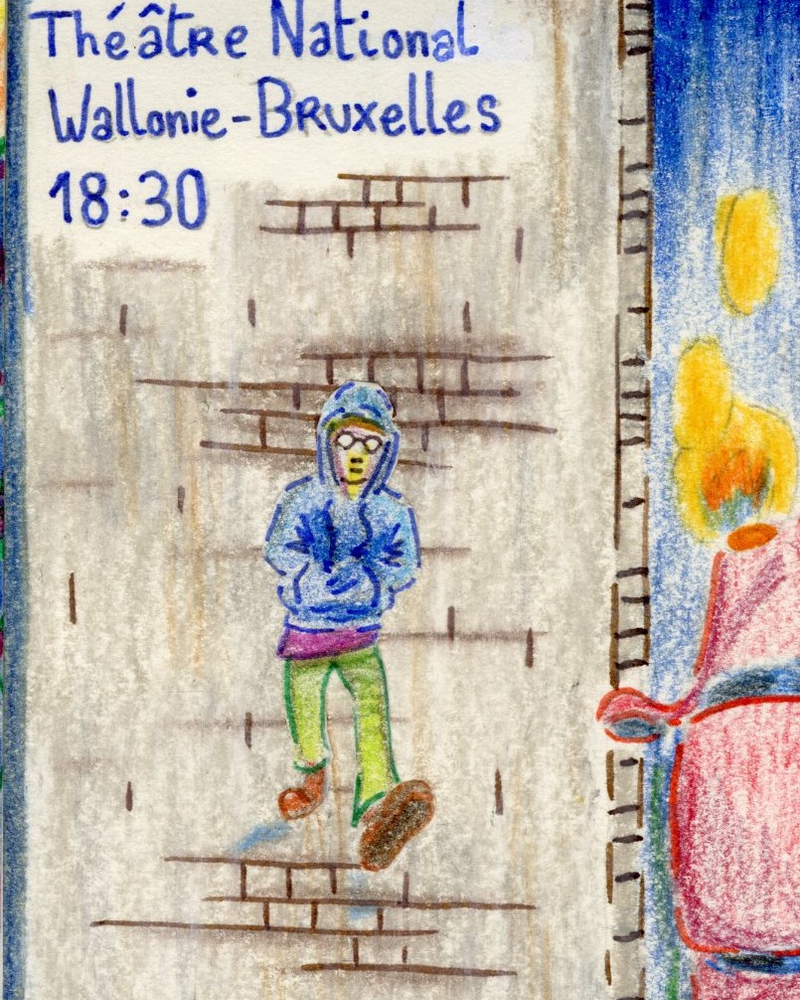 Théâtre National
Wallonie-Bruxelles
18:30